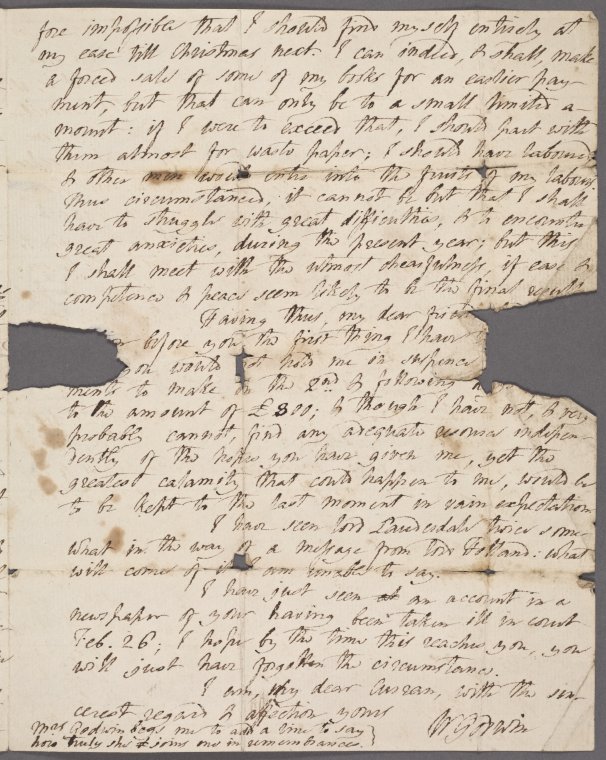 fore impossible that I should find myself entirely at
my ease till Christmas next. I can indeed, & shall, make
a forced sale of some of my books for an earlier pay-
ment, but that can only be to a small limited a-
mount: if I were to exceed that, I should part with
them almost for waste paper; I should have laboured,
& other men would enter into the fruits of my labours.
Thus circumstanced, it cannot be but that I shall
have to struggle with great difficulties, & to encounter
great anxieties, during the present year; but this
I shall meet with the utmost chearfulness, if ease &
competence & peace seem likely to be the final result.
Having thus, my dear frie
before you the first thing I have
ou would not hold me in suspence
ments to make on the 2nd & following
to the amount of £300; & though I have not, & very
probably cannot, find any adequate resource indepen-
dently of the hopes you have given me, yet the
greatest calamity that could happen to me, would be
to be kept to the last moment in vain expectation.
I have seen lord Lauderdale twice some-
what in the way of a message from lord Holland: what
will comes of it I am unable to say.
I have just seen at an account in a
newspaper of your having been taken ill in court
Feb. 26; I hope by the time this reaches you, you
will just have forgotten the circumstance.
I am, my dear Curran, with the sin-
cerest regard & affection yours
W Godwin
Mrs Godwin begs me to add a line to say
how truly she & joins me in remembrances.